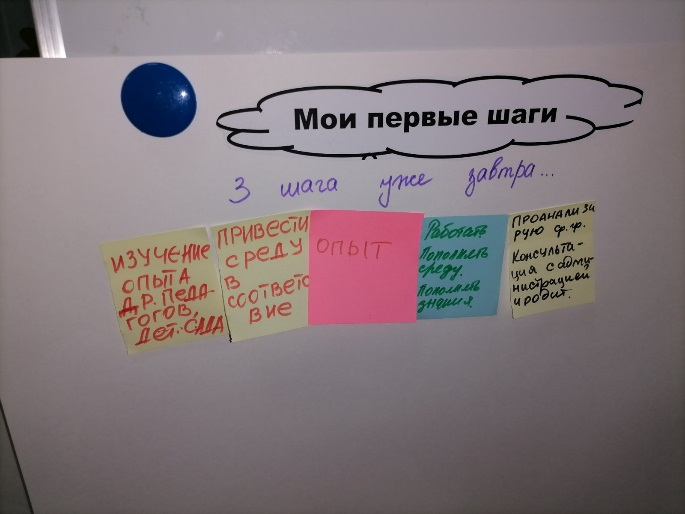 Мои первые шаги
3 шага уже завтра...
ИЗУЧЕНИЕ
ОПЫТА
ДР. ПЕДА-
ГОГОВ,
ДЕТ. САДА
ПРИВЕСТИ
СРЕДУ
В
СООТВЕТС
ВИЕ
ОПЫТ
Работать
Пополнять
среду.
Пополнять
знания
ПРОАНАЛИЗИ
РУЮ ф.гр.
Консульта-
ция с адми-
нистрацией
и родит.